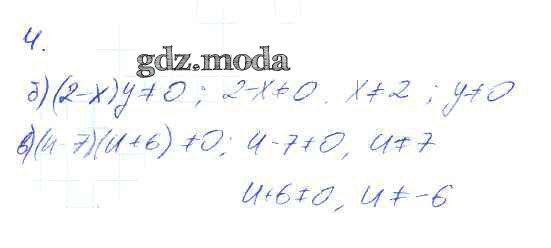 4.
gdz.moda
б) (2-x)y≠0; 2-x≠0, x≠2; y≠0
в) (u-7)(u+6)≠0; u-7≠0, u≠7
u+6≠0, u≠-6